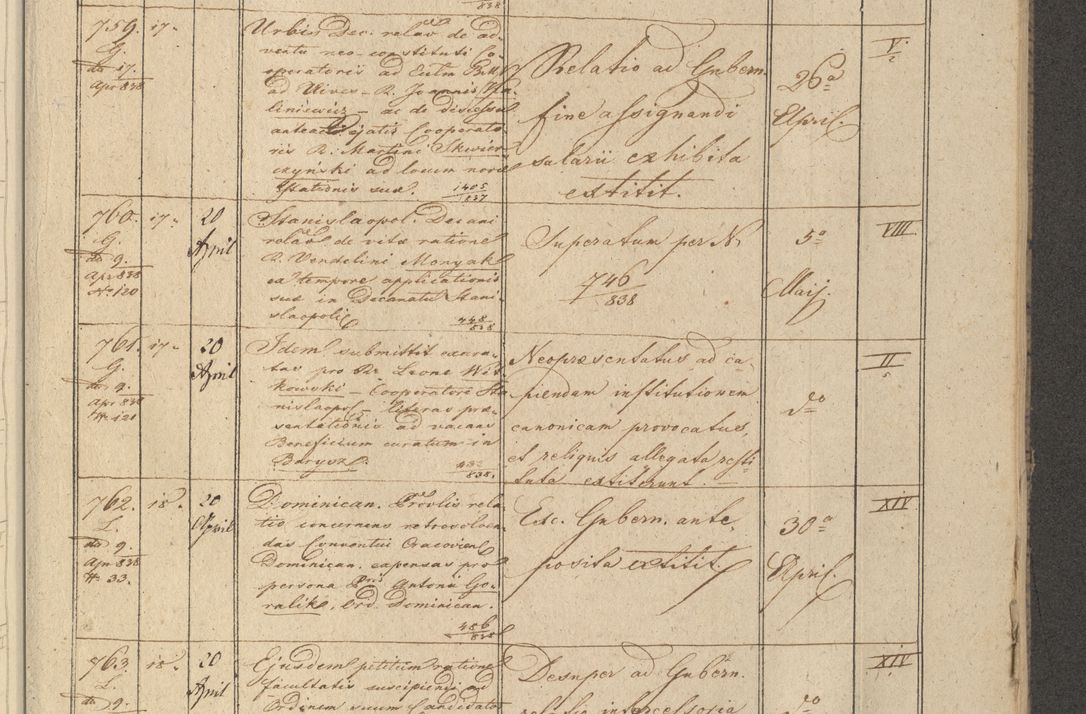 838
759. 17.
G.
do 17.
Apr 838
Urbis Dec. relaõ de ad-
ventu neo-constituti Co-
operatoris ad
ad Nives - R. Joannis
liniewicz - ac de discessu
Cooperato-
ris R. Martini Skwier-
czyński ad locum novae
Stationis suae.
1405/837
Relatio ad Gubern.
fine assignandi
salarii exhibita
extitit.
26a
April.
V.
760. 17.
G.
do 9.
Apr 838
N 120
20
April
Stanislaopol. Decani
relaõ de vitae ratione
R. Vendelini Monyak
ea tempore applicationis
suae in Decanatu Stani-
slaopoli
748/838
Superatum per N
746/838
5a
Maij.
VIII
761. 17.
G.
do 9.
Apr 838
N 121
20
April
Idem submittit exara-
tas pro Leone Wit-
kowski - Cooperatore Sta-
nislaopol - literas prae-
sentationis ad vacans
Beneficium curatum in
Barysz.
838.
Neopraesentatus ad ca-
piendam institutionem
canonicam provocatus,
et reliquis allegata resti-
tuta extiterunt.
do
II
762. 18.
L.
do 9.
Apr 838
N 33.
20
April
Dominican. Provlis rela-
tio concernens
das Conventui Cracovien
Dominican. expensas pro
persona Antonii Go-
ralik, Ord. Dominican.
486/838
Exc. Gubern. ante-
posita extitit.
30a
April.
XIV
763. 18.
L.
do 9.
20
April
Ejusdem petitum ratione
facultatis suscipiendi ad
Ordinem suum Candidatos
Desuper ad Gubern.
relatio intercessoria
do
XIV